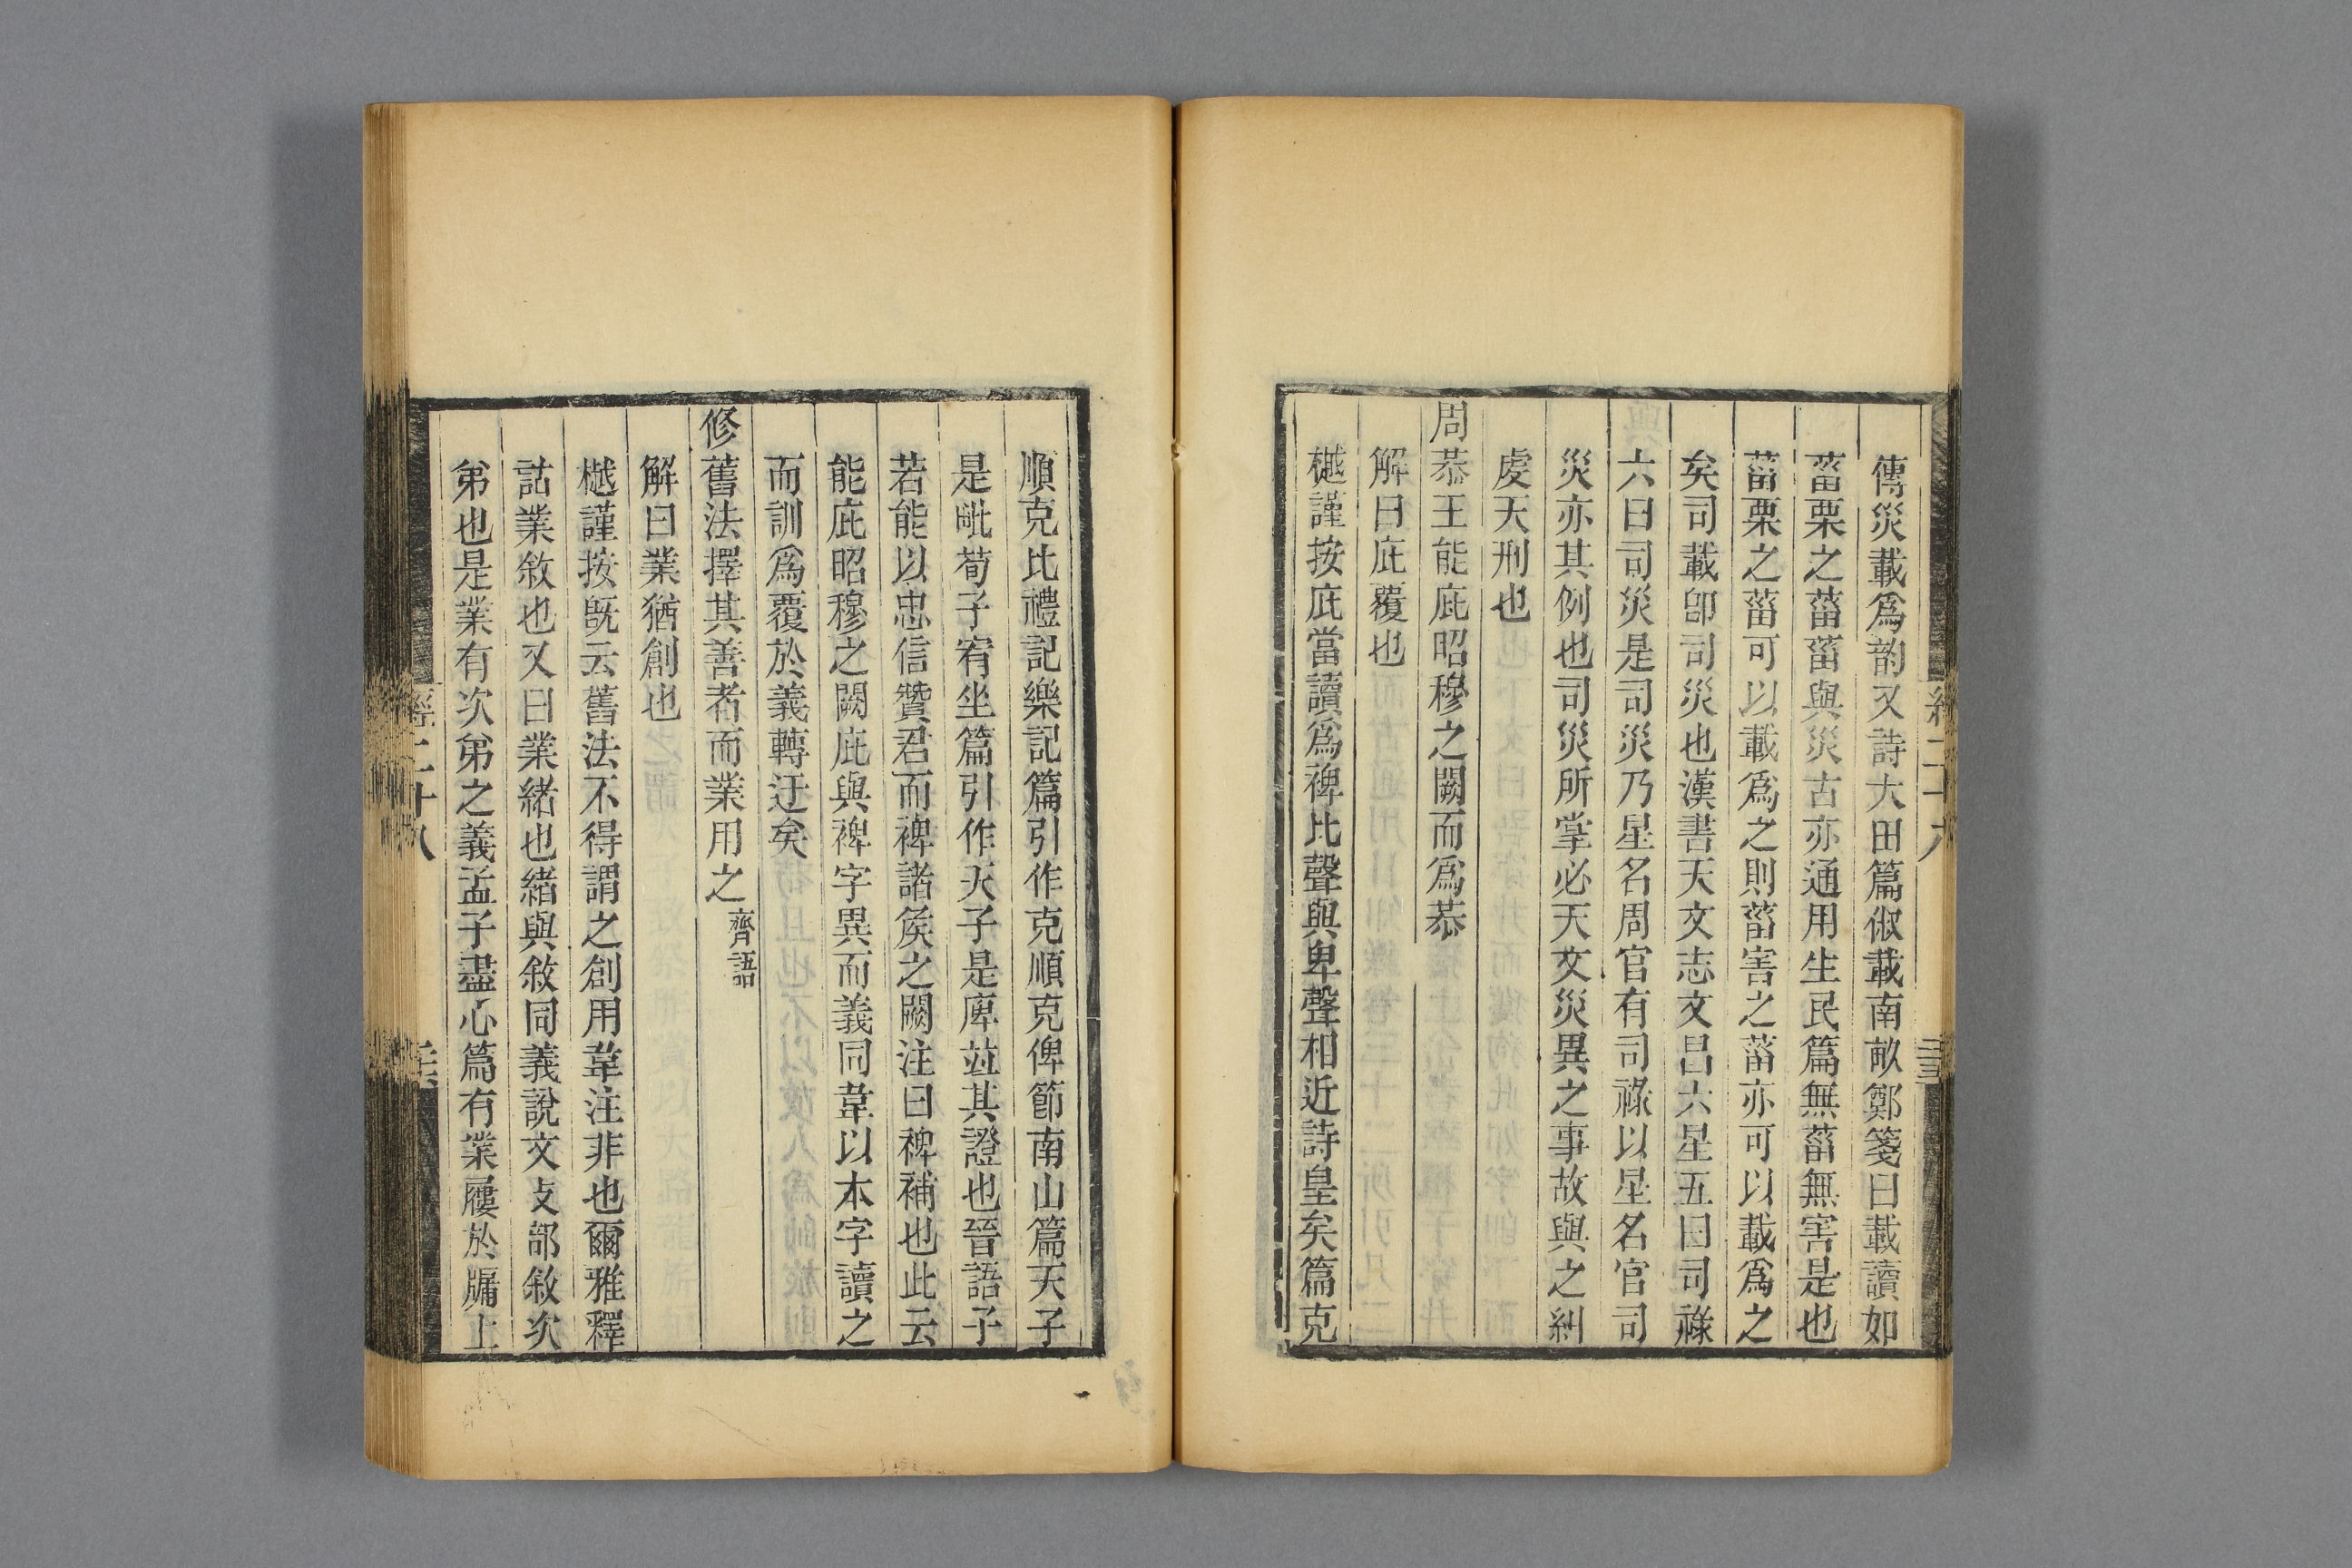 傳災載爲韵又詩大田篇俶載南畝鄭箋曰載讀如
菑栗之菑菑與災古亦通用生民篇無菑無害是也
菑栗之菑可以載爲之則菑害之菑亦可以載爲之
矣司載卽司災也漢書天文志文昌六星五曰司祿
六曰司災是司災乃星名周官有司祿以星名官司
災亦其例也司災所掌必天文災異之事故與之糾
虔天刑也
周恭王能庇昭穆之闕而爲恭
解曰庇覆也
樾謹按庇當讀爲裨比聲與卑聲相近詩皇矣篇克
順克比禮記樂記篇引作克順克俾節南山篇天子
是毗荀子宥坐篇引作天子是庳竝其證也晉語子
若能以忠信贊君而裨諸矦之闕注曰裨補也此云
能庇昭穆之闕庇與裨字異而義同韋以本字讀之
而訓爲覆於義轉迂矣
修舊法擇其善者而業用之齊語
解曰業猶創也
樾謹按旣云舊法不得謂之創用韋注非也爾雅釋
詁業敘也又曰業緒也緒與敘同義說文攴部敘次
弟也是業有次弟之義孟子盡心篇有業屨於牖上
經二十八